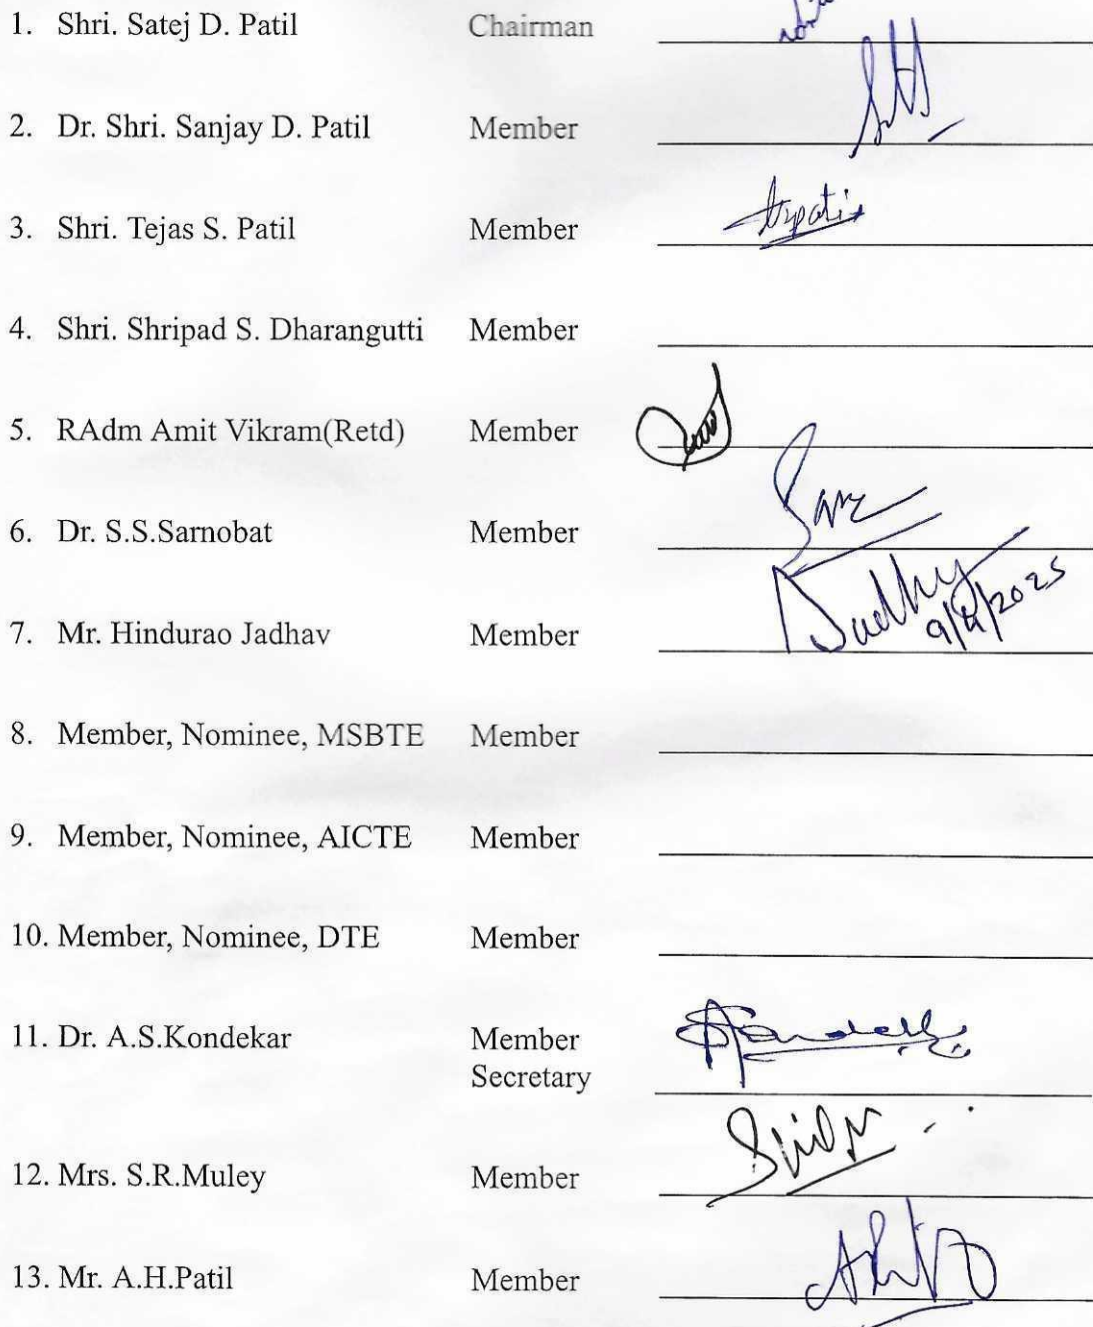 1. Shri. Satej D. Patil Chairman
2. Dr. Shri. Sanjay D. Patil Member
3. Shri. Tejas S. Patil Member
4. Shri. Shripad S. Dharangutti Member
5. RAdm Amit Vikram(Retd) Member
6. Dr. S.S.Sarnobat Member
7. Mr. Hindurao Jadhav Member
9/4/2025
8. Member, Nominee, MSBTE Member
9. Member, Nominee, AICTE Member
10. Member, Nominee, DTE Member
11. Dr. A.S.Kondekar Member
Secretary
12. Mrs. S.R.Muley Member
13. Mr. A.H.Patil Member